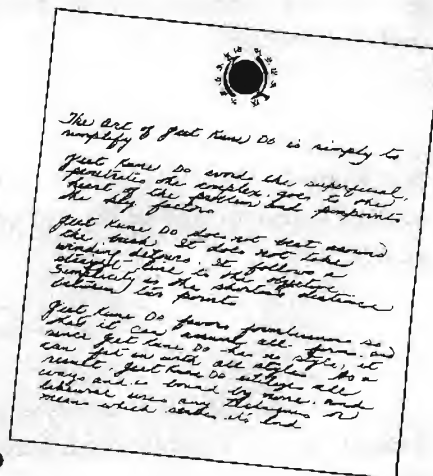 The art of Jeet Kune Do is simply to
simplify
Jeet Kune Do avoid the superficial,
penetrates the complex, goes to the
heart of the problem and pinpoints
the key factors
Jeet Kune Do does not beat around
the bush. It does not take
winding detours. It follows a
straight line to the objective.
Simplicity is the shortest distance
between two points
Jeet Kune Do favors formlessness so
that it can assume all forms and
since Jeet Kune Do has no style, it
can fit in with all styles. As a
result, Jeet Kune Do utilizes all
ways and is bound by none and
likewise uses any techniques or
means which serves its end